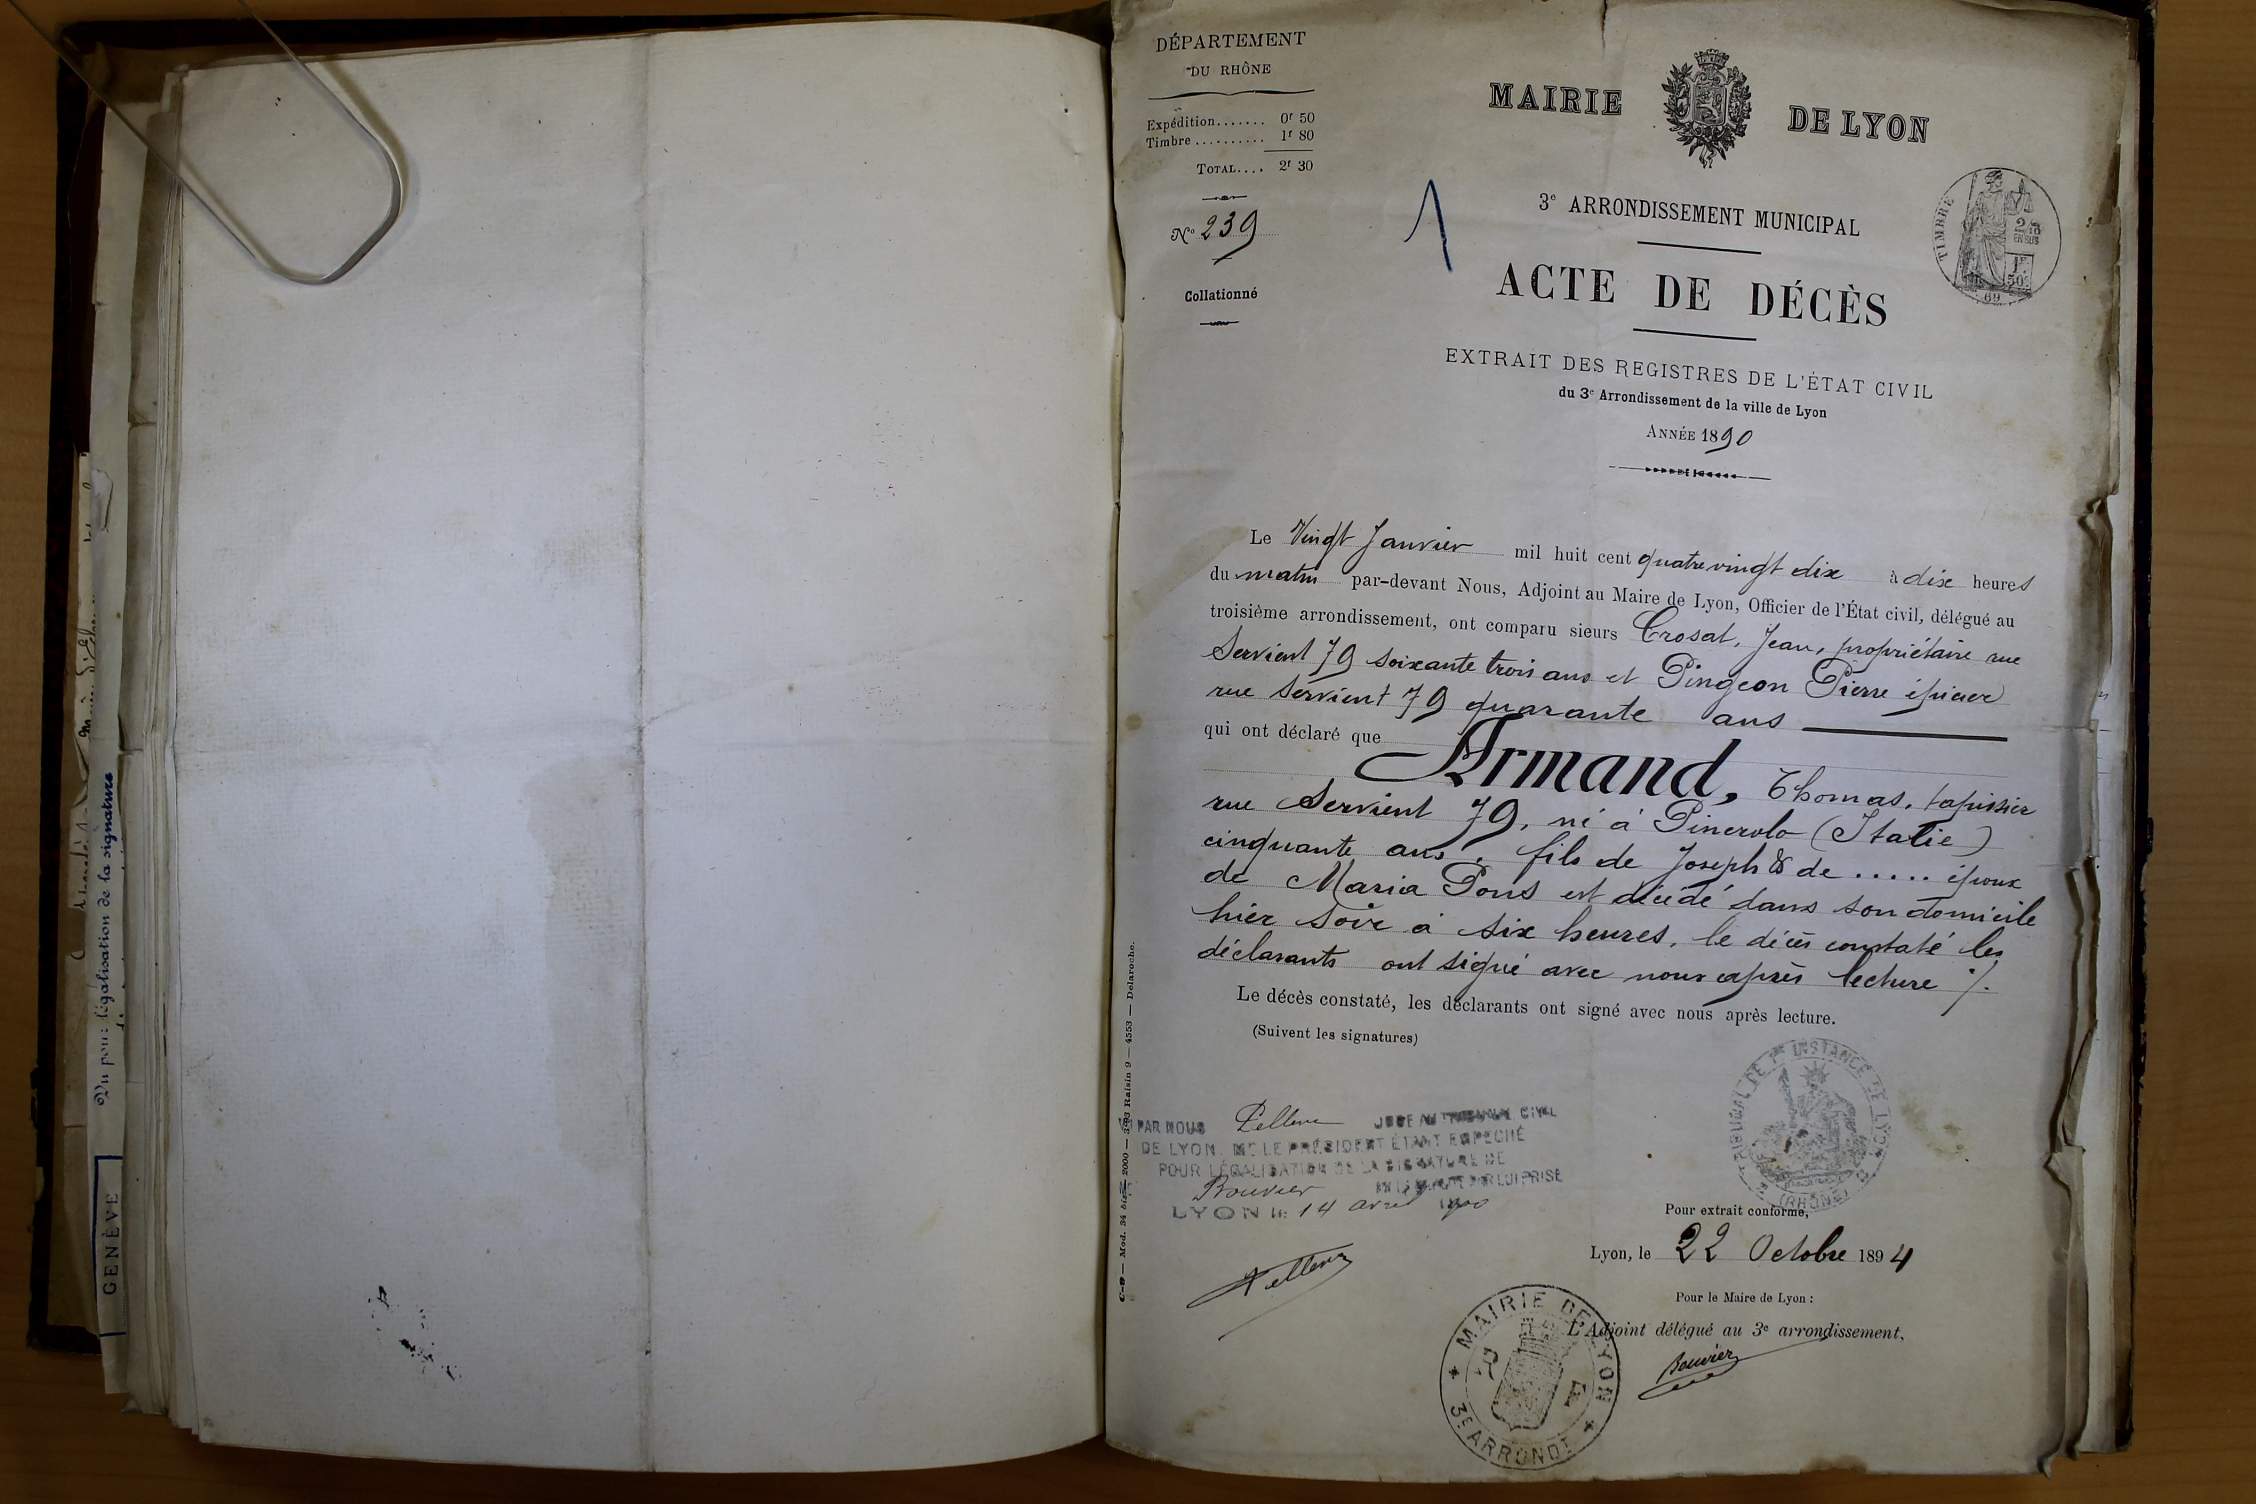 DÉPARTEMENT
DU RHÔNE
Expédition....... 0f 50
Timbre.......... 1f 80
TOTAL.... 2f 30
No 239
Collationné
1
MAIRIE DE LYON
3e ARRONDISSEMENT MUNICIPAL
TIMBRE
2/10
EN SUS
1F
50c
69
ACTE DE DÉCÈS
EXTRAIT DES REGISTRES DE L'ÉTAT CIVIL
du 3e Arrondissement de la ville de Lyon
ANNÉE 1890
Le Vingt Janvier mil huit cent quatre vingt dix à dix heures
du matin par-devant Nous, Adjoint au Maire de Lyon, Officier de l'État civil, délégué au
troisième arrondissement, ont comparu sieurs Crosat, Jean, propriétaire rue
Servient 79 soixante trois ans et Pingeon Pierre épicier
rue Servient 79 quarante ans
qui ont déclaré que Armand, Thomas, tapissier
rue Servient 79, né à Pinerolo (Italie)
cinquante ans, fils de Joseph & de ..... époux
de Maria Pons est décédé dans son domicile
hier soir à six heures, le décès constaté les
déclarants ont signé avec nous après lecture ./.
Le décès constaté, les déclarants ont signé avec nous après lecture.
(Suivent les signatures)
TRIBUNAL DE 1re INSTANCE DE LYON
(RHÔNE)
PAR NOUS Pellerin JUGE AU TRIBUNAL CIVIL
DE LYON. MR LE PRÉSIDENT ÉTANT EMPÊCHÉ
POUR LÉGALISATION DE LA SIGNATURE DE
Bouvier
LYON le 14 avril 1900
Pour extrait conforme,
Lyon, le 22 Octobre 1894
Pour le Maire de Lyon :
L'Adjoint délégué au 3e arrondissement,
Bouvier
MAIRIE DE LYON
R F
3E ARRONDT
C-9 — Mod. 34 bis — 2000 — Raisin 9 — 4553 — Delaroche.
Vu pour légalisation de la signature
GENÈVE